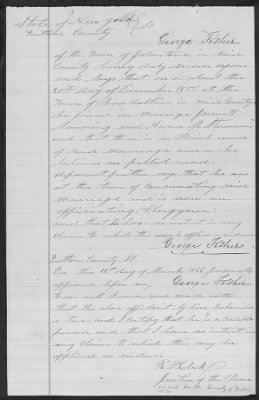 State of New York
Fulton County
George Fisher
of the town of Johnstown in said
County being duly sworn depos
and says, that on or about the
20th day of December 1855, at the
town of Broadalbin in said County
he joined in marriage
and
and that there is no Public record
of said marriage and as he
believes no published record
deponent further says that he was
at the time of consumating said
marriage and is now an
officiating Clergyman
and that he has no interest in any
claim to which this may be applied as evidence
George Fisher
Fulton County SS.
On this 12th day of March 1866 personally
appeared before me, George Fisher
to me well known and made oath
that the above affidavit by him subscribed
is true, and I certify that he is a credible
person and that I have no interest in
any claim to which this may be
applied as evidence
Justice of the Peace
in and for the County of Fulton